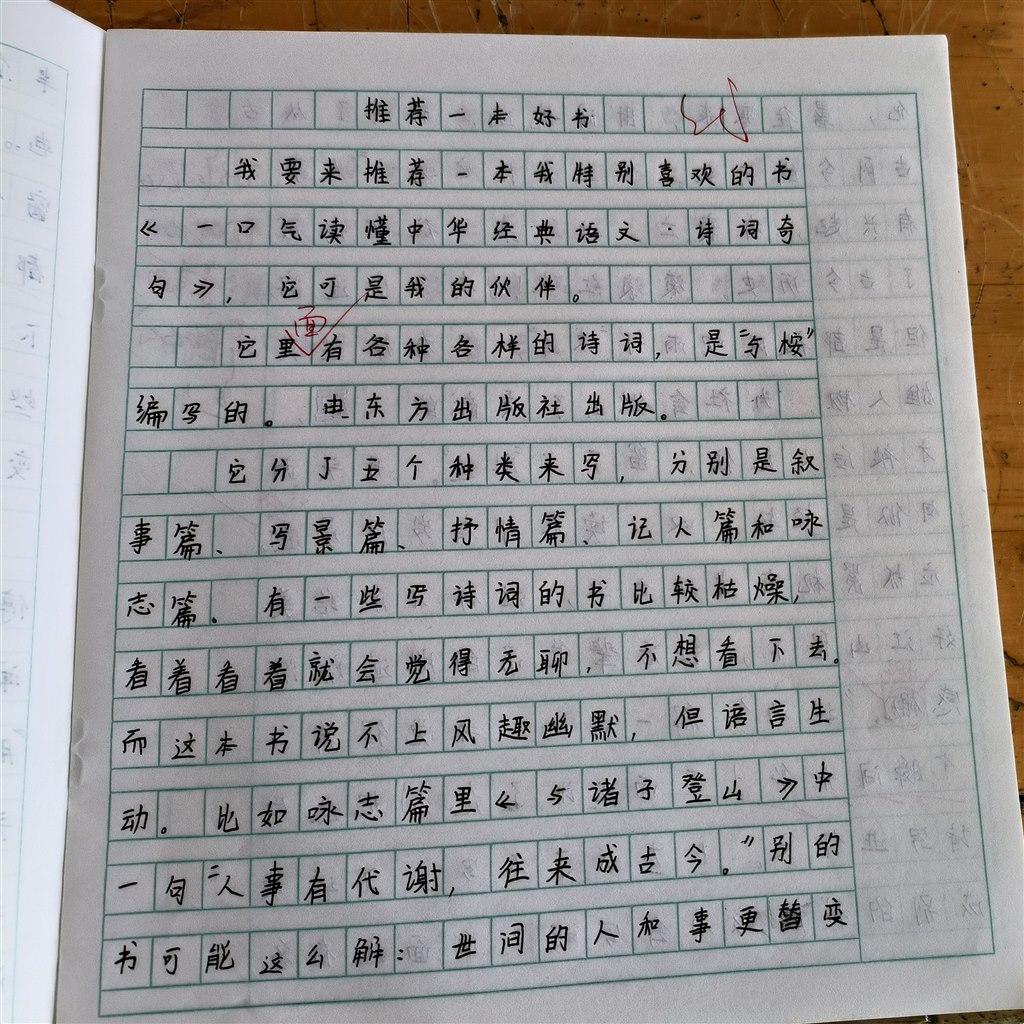 推荐一本好书
我要来推荐一本我特别喜欢的书
《一口气读懂中华经典语文·诗词奇
句》，它可是我的伙伴。
面
它里有各种各样的诗词，是“与桉”
编写的。由东方出版社出版。
它分了五个种类来写，分别是叙
事篇、写景篇、抒情篇、记人篇和咏
志篇。有一些写诗词的书比较枯燥，
看着看着就会觉得无聊，不想看下去。
而这本书说不上风趣幽默，但语言生
动。比如咏志篇里《与诸子登山》中
一句“人事有代谢，往来成古今。”别的
书可能这么解：世间的人和事更替变